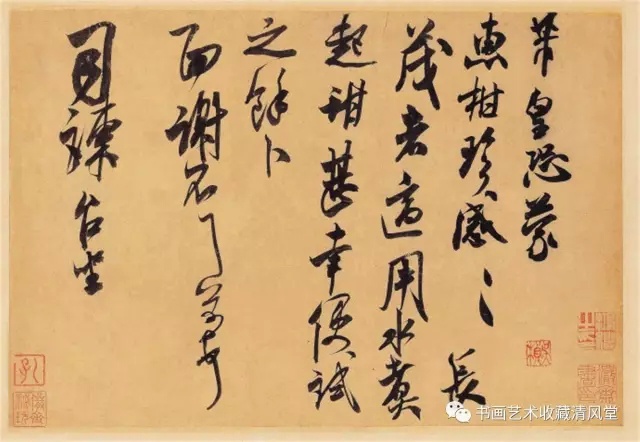 芾皇恐蒙
惠柑珍感〻長
茂者適用水煮
起甜甚幸便試
之餘卜
面謝不一一芾頓首
司諫台坐
书画艺术收藏清风堂